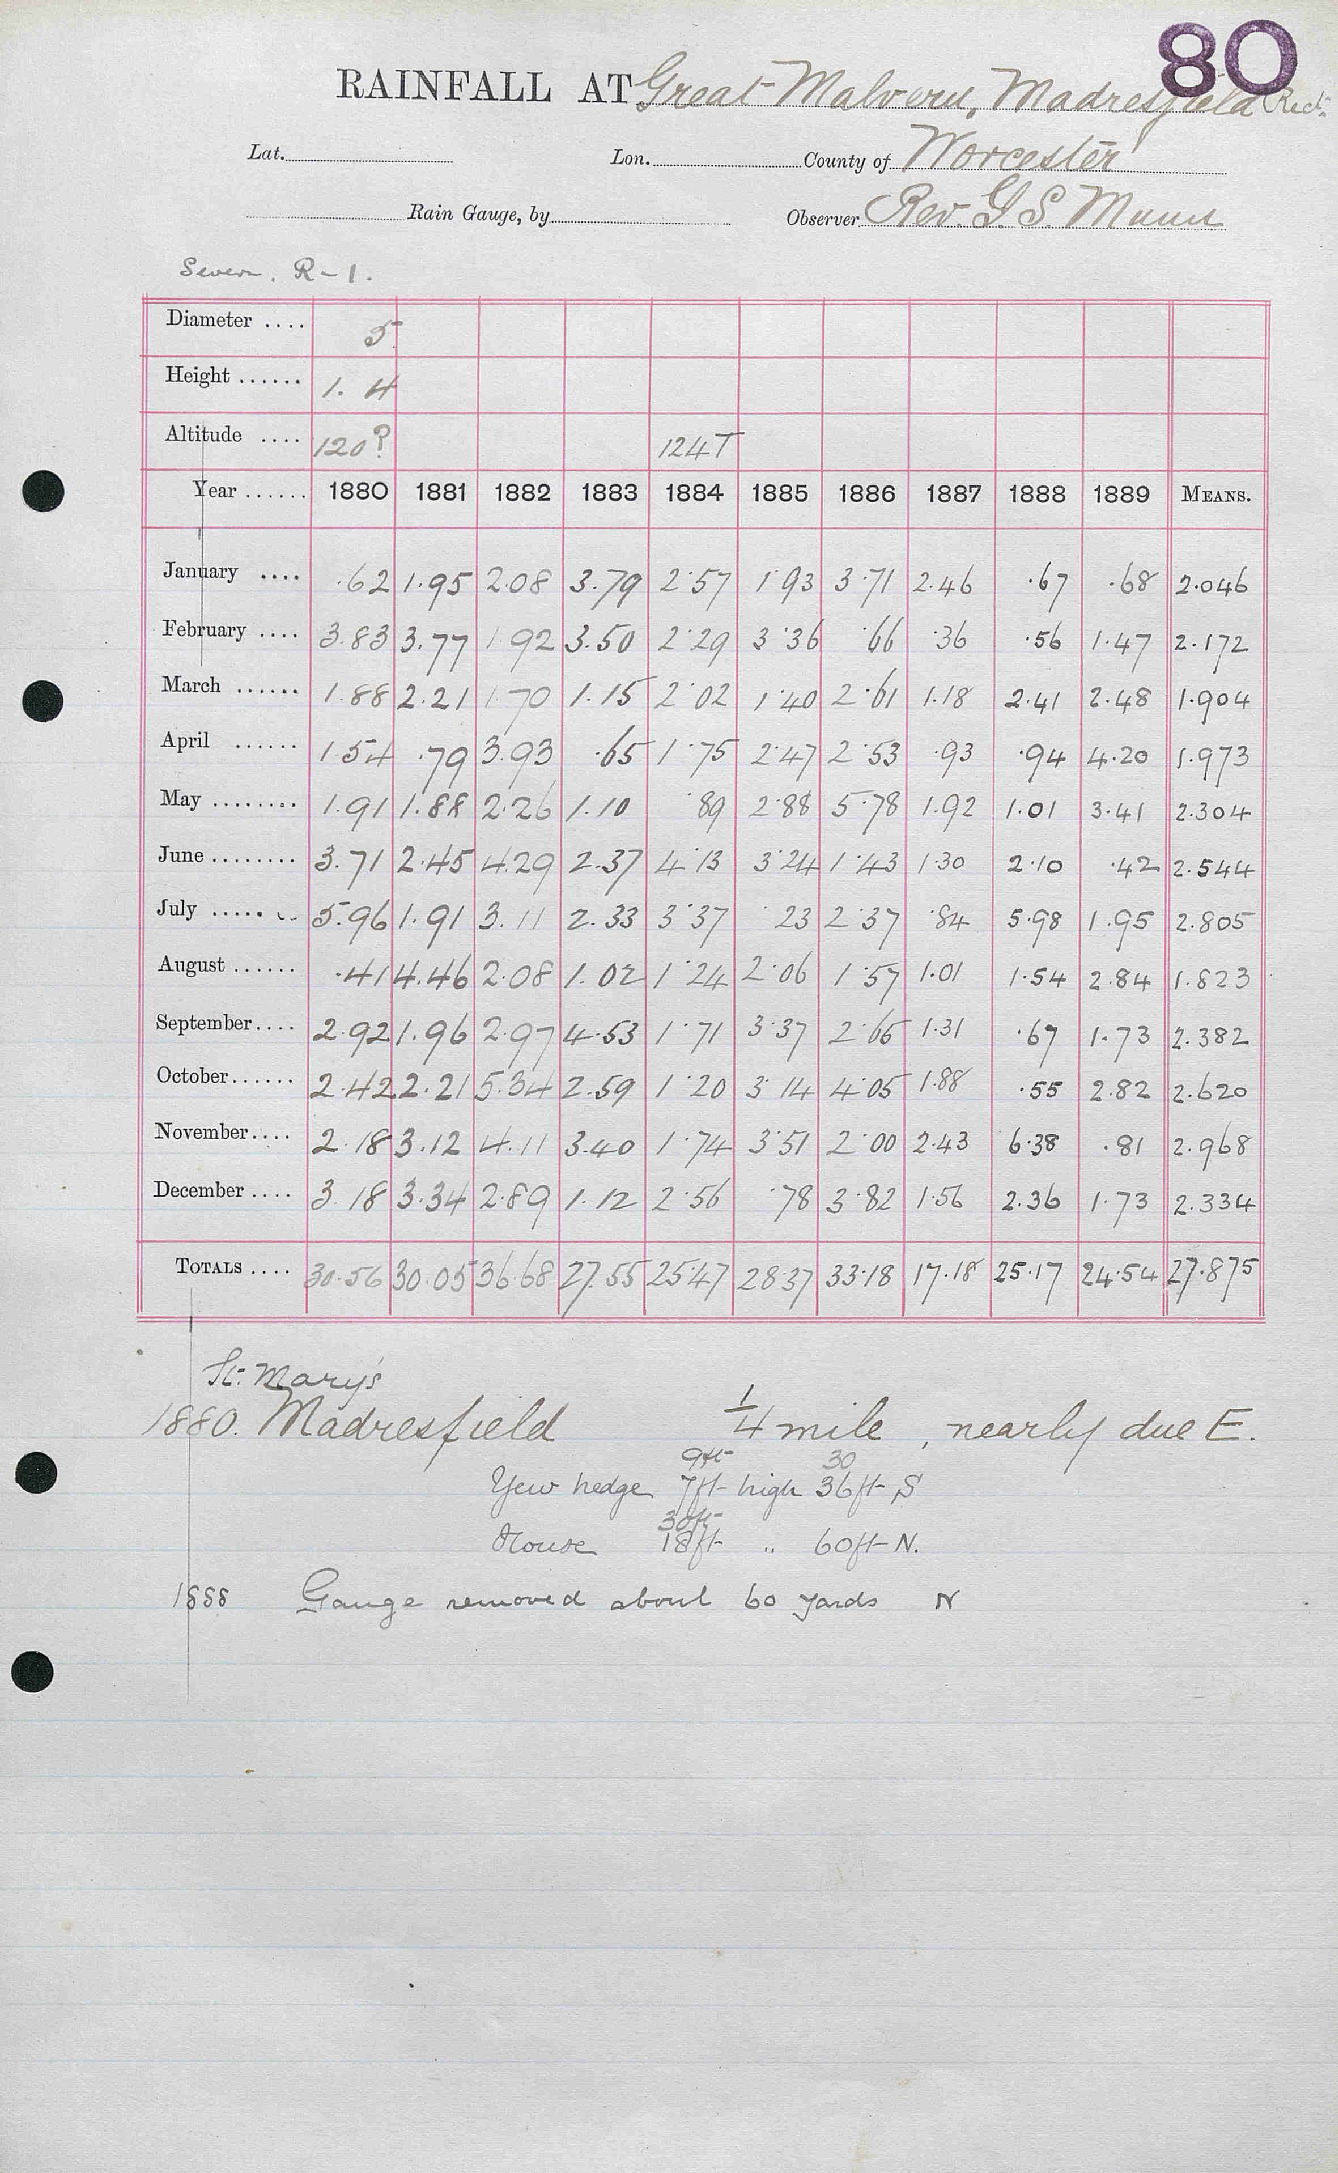 80
RAINFALL AT Great Malvern, Madresfield Rect.
Lat. Lon. County of Worcester
Rain Gauge, by Observer Rev. G. S. Munn
Severn. R-1.
Diameter .... 5
Height ...... 1. 4
Altitude .... 120? 124T
Year ...... 1880 1881 1882 1883 1884 1885 1886 1887 1888 1889 MEANS.
January .... .62 1.95 2.08 3.79 2.57 1.93 3.71 2.46 .67 .68 2.046
February .... 3.83 3.77 1.92 3.50 2.29 3.36 .66 .36 .56 1.47 2.172
March ...... 1.88 2.21 1.70 1.15 2.02 1.40 2.61 1.18 2.41 2.48 1.904
April ...... 1.54 .79 3.93 .65 1.75 2.47 2.53 .93 .94 4.20 1.973
May ........ 1.91 1.88 2.26 1.10 .89 2.88 5.78 1.92 1.01 3.41 2.304
June ........ 3.71 2.45 4.29 2.37 4.13 3.24 1.43 1.30 2.10 .42 2.544
July ........ 5.96 1.91 3.11 2.33 3.37 .23 2.37 .84 5.98 1.95 2.805
August ...... .41 4.46 2.08 1.02 1.24 2.06 1.57 1.01 1.54 2.84 1.823
September .... 2.92 1.96 2.97 4.53 1.71 3.37 2.65 1.31 .67 1.73 2.382
October ...... 2.42 2.21 5.34 2.59 1.20 3.14 4.05 1.88 .55 2.82 2.620
November .... 2.18 3.12 4.11 3.40 1.74 3.51 2.00 2.43 6.38 .81 2.968
December .... 3.18 3.34 2.89 1.12 2.56 .78 3.82 1.56 2.36 1.73 2.334
TOTALS .... 30.56 30.05 36.68 27.55 25.47 28.37 33.18 17.18 25.17 24.54 27.875
St. Mary's
1880. Madresfield 1/4 mile, nearly due E.
9ft 30
Yew hedge 7ft high 36ft S
30ft
House 18ft " 60ft N.
1888 Gauge removed about 60 yards N